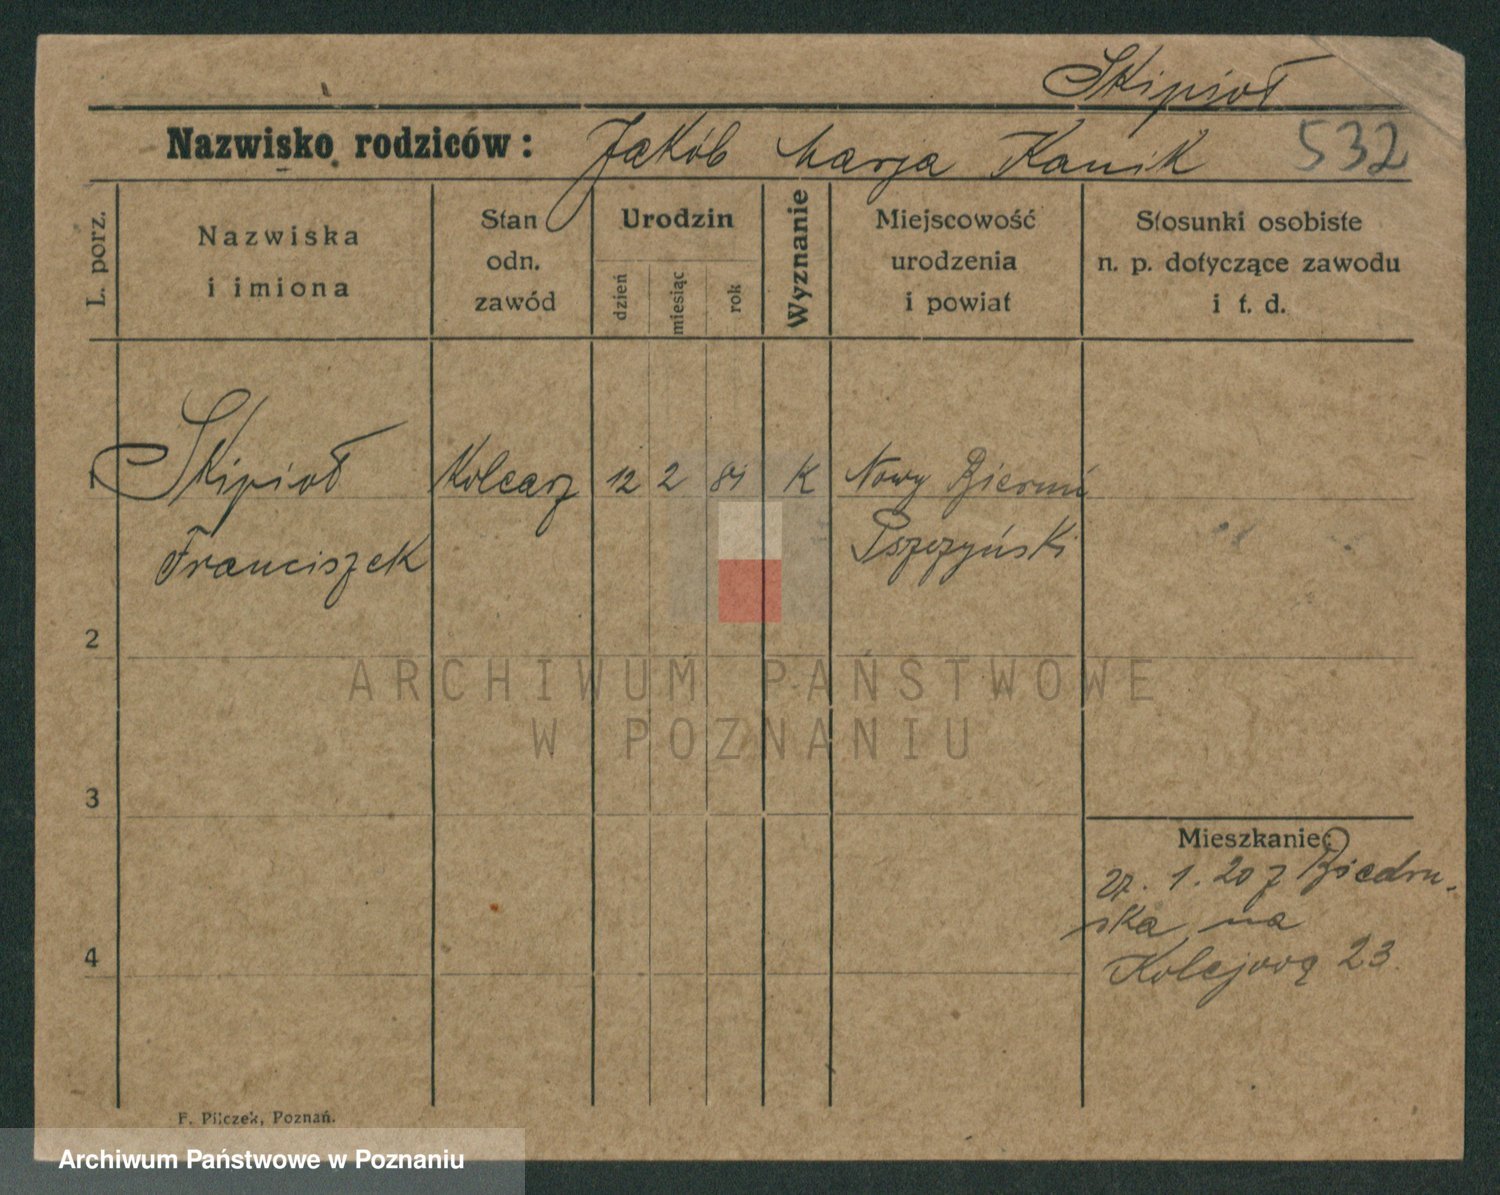 Skipioł
Nazwisko rodziców: Jakób Marja Kanik 532
L. porz.
Nazwiska
i imiona
Stan
odn.
zawód
Urodzin
dzień
miesiąc
rok
Wyznanie
Miejscowość
urodzenia
i powiat
Stosunki osobiste
n. p. dotyczące zawodu
i t. d.
1 Skipioł Kolearz 12 2 81 K Nowy Bieruń
Franciszek Pszczyński
2
ARCHIWUM PAŃSTWOWE
W POZNANIU
3
Mieszkanie:
27. 1. 20 z Biedru-
ska na
4
Kolejową 23.
F. Pilczek, Poznań.
Archiwum Państwowe w Poznaniu